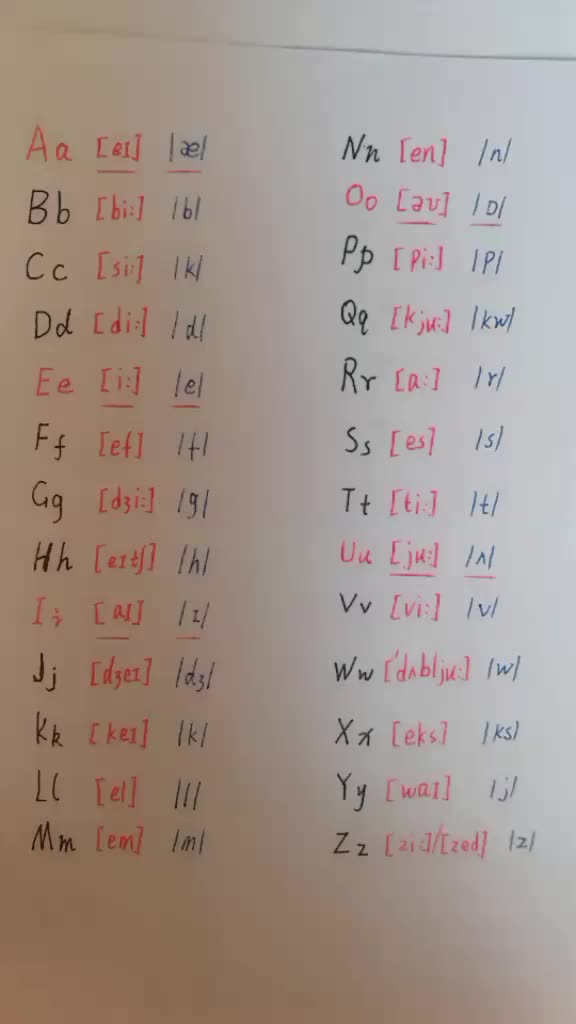 Aa [eɪ] /æ/
Bb [bi:] /b/
Cc [si:] /k/
Dd [di:] /d/
Ee [i:] /e/
Ff [ef] /f/
Gg [dʒi:] /g/
Hh [eɪtʃ] /h/
Ii [aɪ] /ɪ/
Jj [dʒeɪ] /dʒ/
Kk [keɪ] /k/
Ll [el] /l/
Mm [em] /m/
Nn [en] /n/
Oo [əʊ] /ɒ/
Pp [pi:] /p/
Qq [kju:] /kw/
Rr [a:] /r/
Ss [es] /s/
Tt [ti:] /t/
Uu [ju:] /ʌ/
Vv [vi:] /v/
Ww ['dʌblju:] /w/
Xx [eks] /ks/
Yy [waɪ] /j/
Zz [zi:]/[zed] /z/